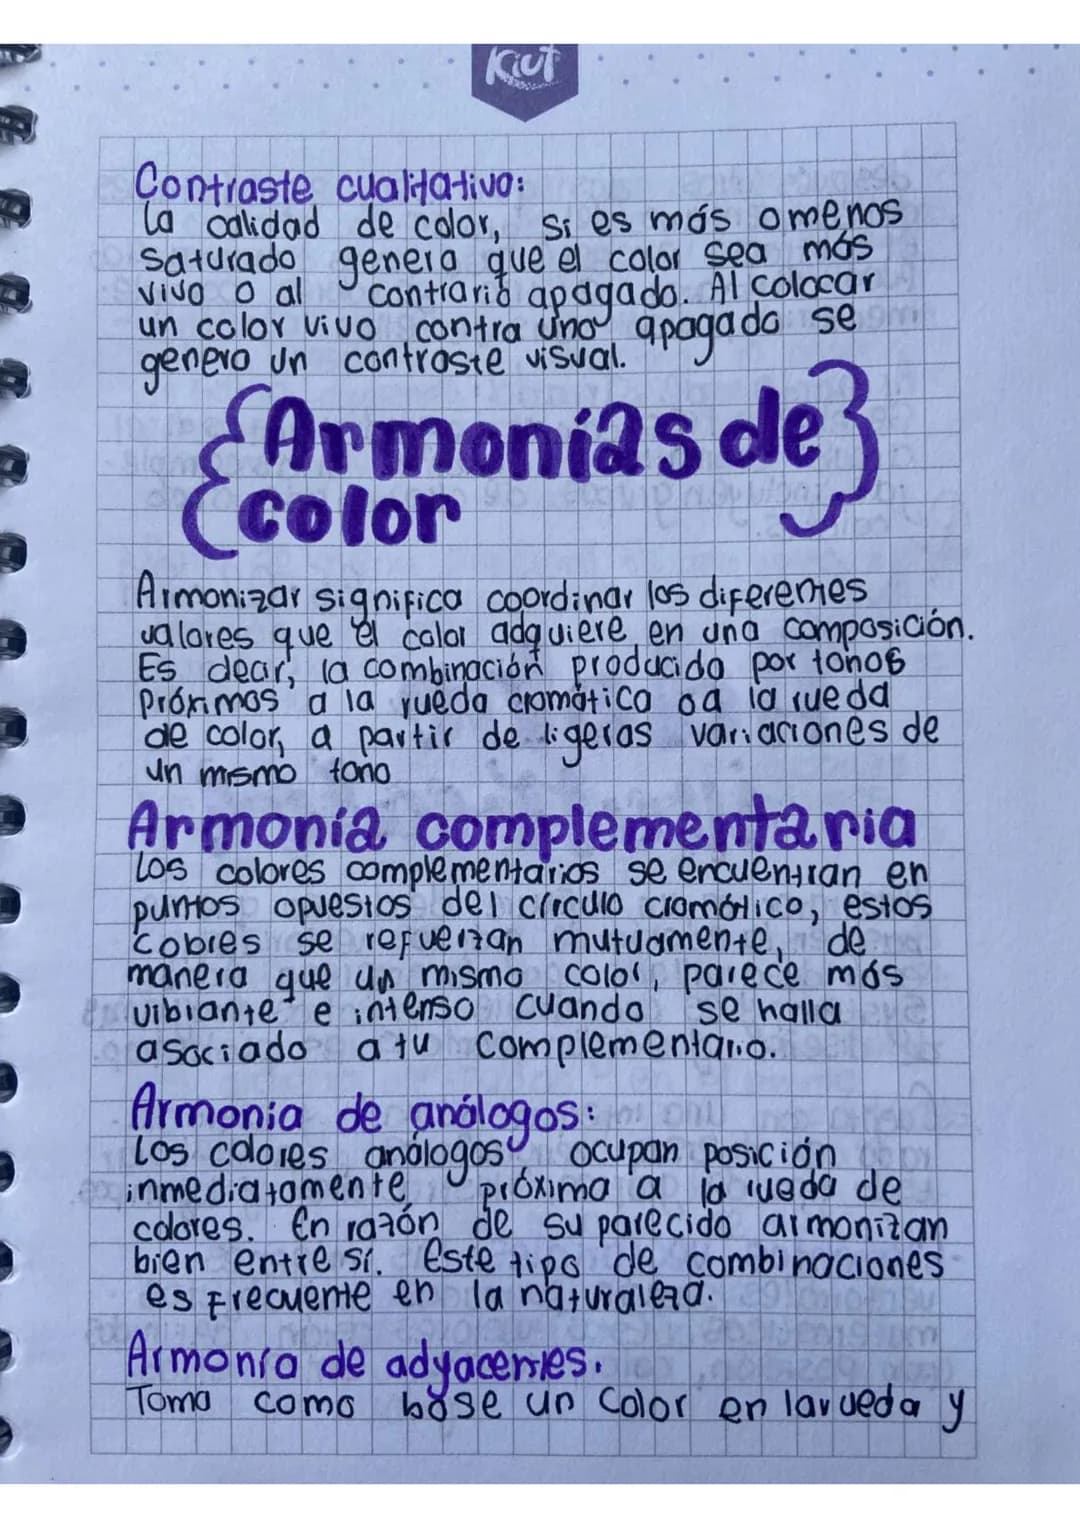 Kiut
Contraste cualitativo:
La calidad de color, si es más o menos
saturado genera que el color sea más
vivo o al contrario apagado. Al colocar
un color vivo contra uno apagado se
genero un contraste visual.
{Armonías de}
color
Armonizar significa coordinar los diferentes
valores que el color adquiere en una composición.
Es decir, la combinación producida por tonos
próximos a la rueda cromática o a la rueda
de color, a partir de ligeras variaciones de
un mismo tono
Armonía complementaria
Los colores complementarios se encuentran en
puntos opuestos del círculo cromático, estos
colores se refuerzan mutuamente, de
manera que un mismo color, parece más
vibrante e intenso cuando se halla
asociado a tu complementario.
Armonia de análogos:
Los colores análogos ocupan posición
inmediatamente próxima a la rueda de
colores. En razón de su parecido armonizan
bien entre sí. Este tipo de combinaciones
es frecuente en la naturaleza.
Armonía de adyacentes.
Toma como base un color en la rueda y